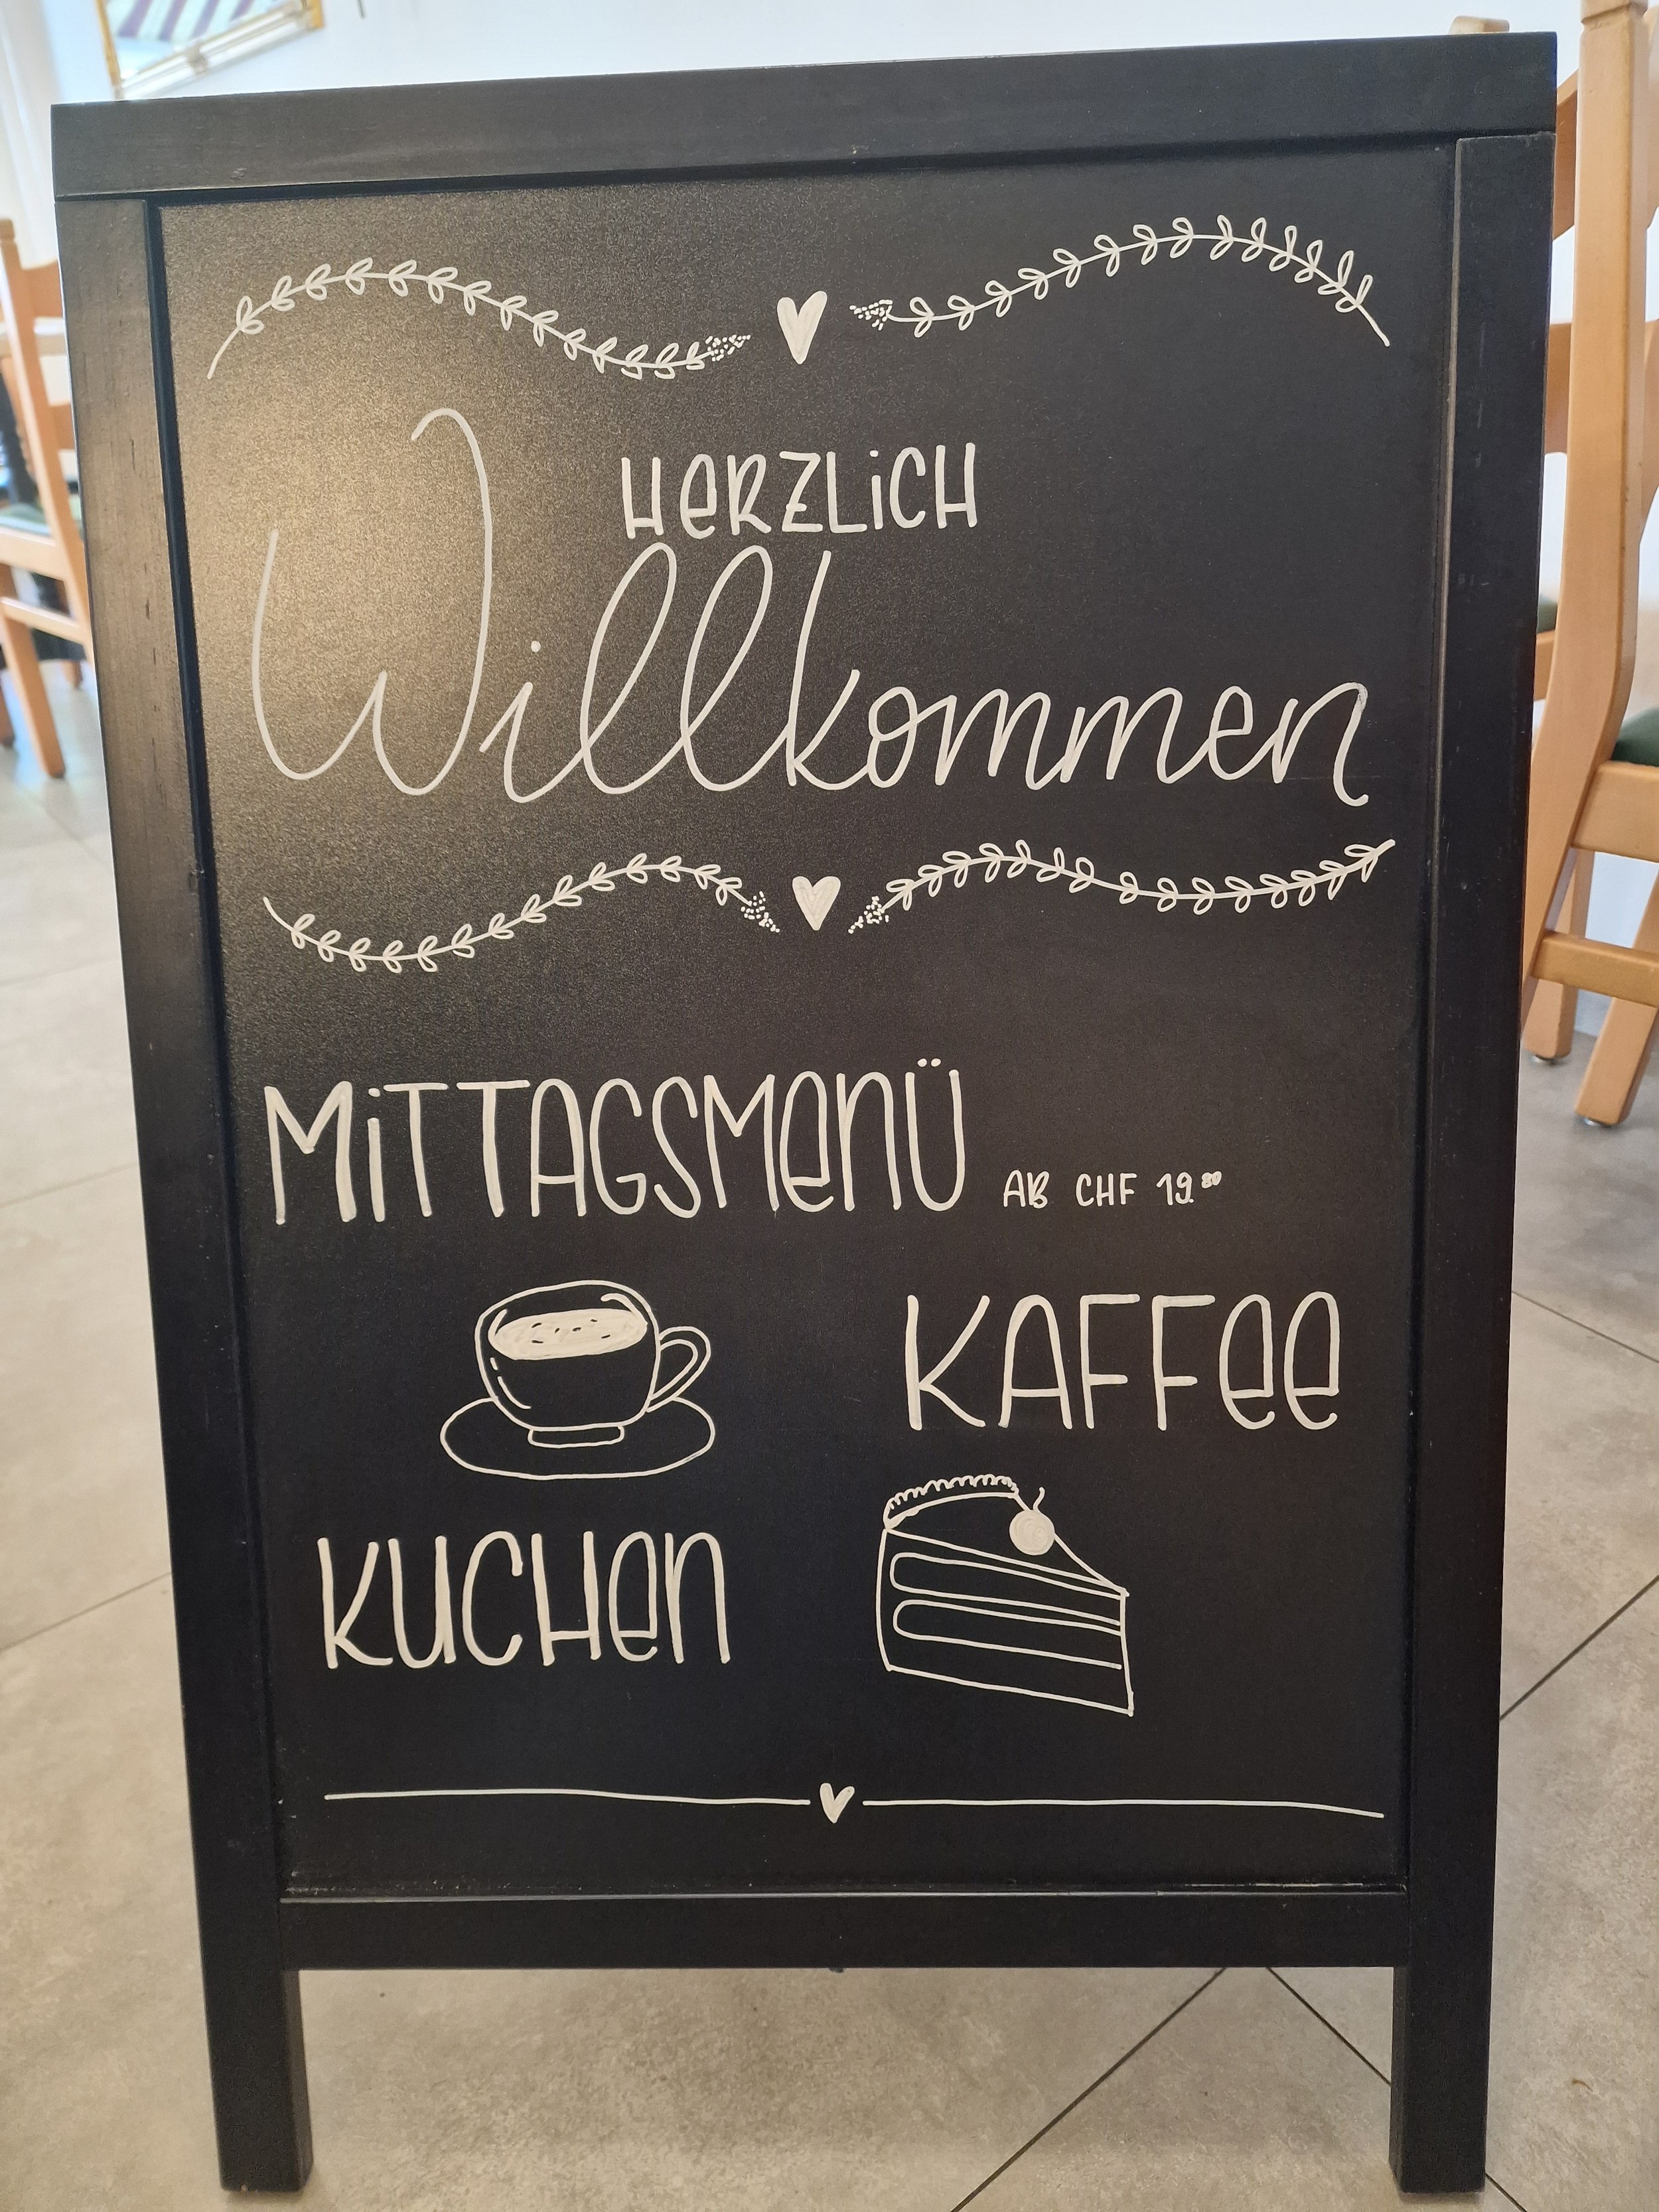 HeRZLiCH
Willkommen
MiTTAGSMenÜ AB CHF 19.80
KAFFee
KUCHen